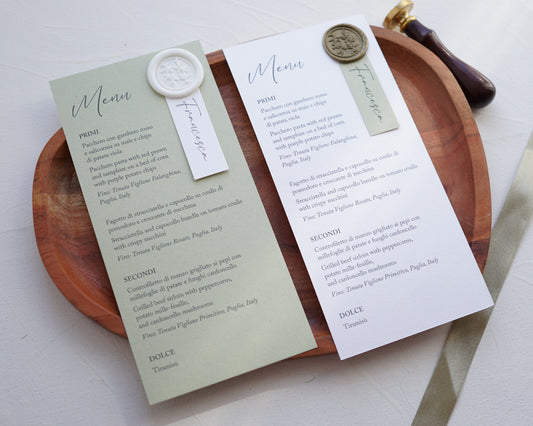 Menu
Francesca
PRIMI
Pacchero con gambero rosso
e salicornia su mais e chips
di patata viola
Pacchero pasta with red prawn
and samphire on a bed of corn,
with purple potato chips
Vino: Tenuta Viglione Falanghina,
Puglia, Italy
Fagotto di stracciatella e capocollo su coulis di
pomodoro e croccante di zucchina
Stracciatella and capocollo bundle on tomato coulis
with crispy zucchini
Vino: Tenuta Viglione Rosato, Puglia, Italy
SECONDI
Controfiletto di manzo grigliato ai pepi con
millefoglie di patate e funghi cardoncello
Grilled beef sirloin with peppercorns,
potato mille-feuille,
and cardoncello mushrooms
Vino: Tenuta Viglione Primitivo, Puglia, Italy
DOLCE
Tiramisù
Menu
Francesca
PRIMI
Pacchero con gambero rosso
e salicornia su mais e chips
di patata viola
Pacchero pasta with red prawn
and samphire on a bed of corn,
with purple potato chips
Vino: Tenuta Viglione Falanghina,
Puglia, Italy
Fagotto di stracciatella e capocollo su coulis di
pomodoro e croccante di zucchina
Stracciatella and capocollo bundle on tomato coulis
with crispy zucchini
Vino: Tenuta Viglione Rosato, Puglia, Italy
SECONDI
Controfiletto di manzo grigliato ai pepi con
millefoglie di patate e funghi cardoncello
Grilled beef sirloin with peppercorns,
potato mille-feuille,
and cardoncello mushrooms
Vino: Tenuta Viglione Primitivo, Puglia, Italy
DOLCE
Tiramisù